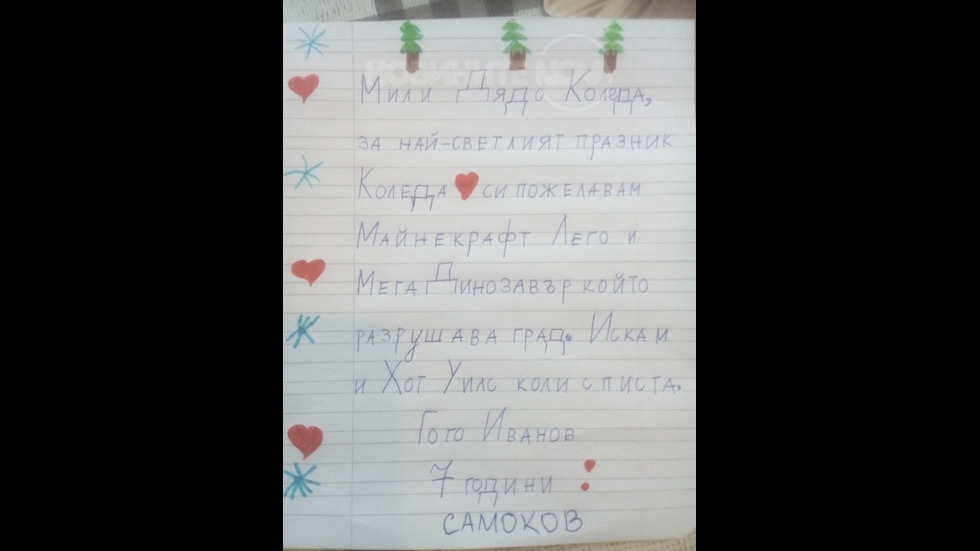 НОВИНИТЕ NOVA
Мили Дядо Коледа,
за най-светлият празник
Коледа си пожелавам
Майнекрафт Лего и
Мега Динозавър който
разрушава град. Искам
и Хот Уилс коли с писта.
Гого Иванов
7 години
САМОКОВ